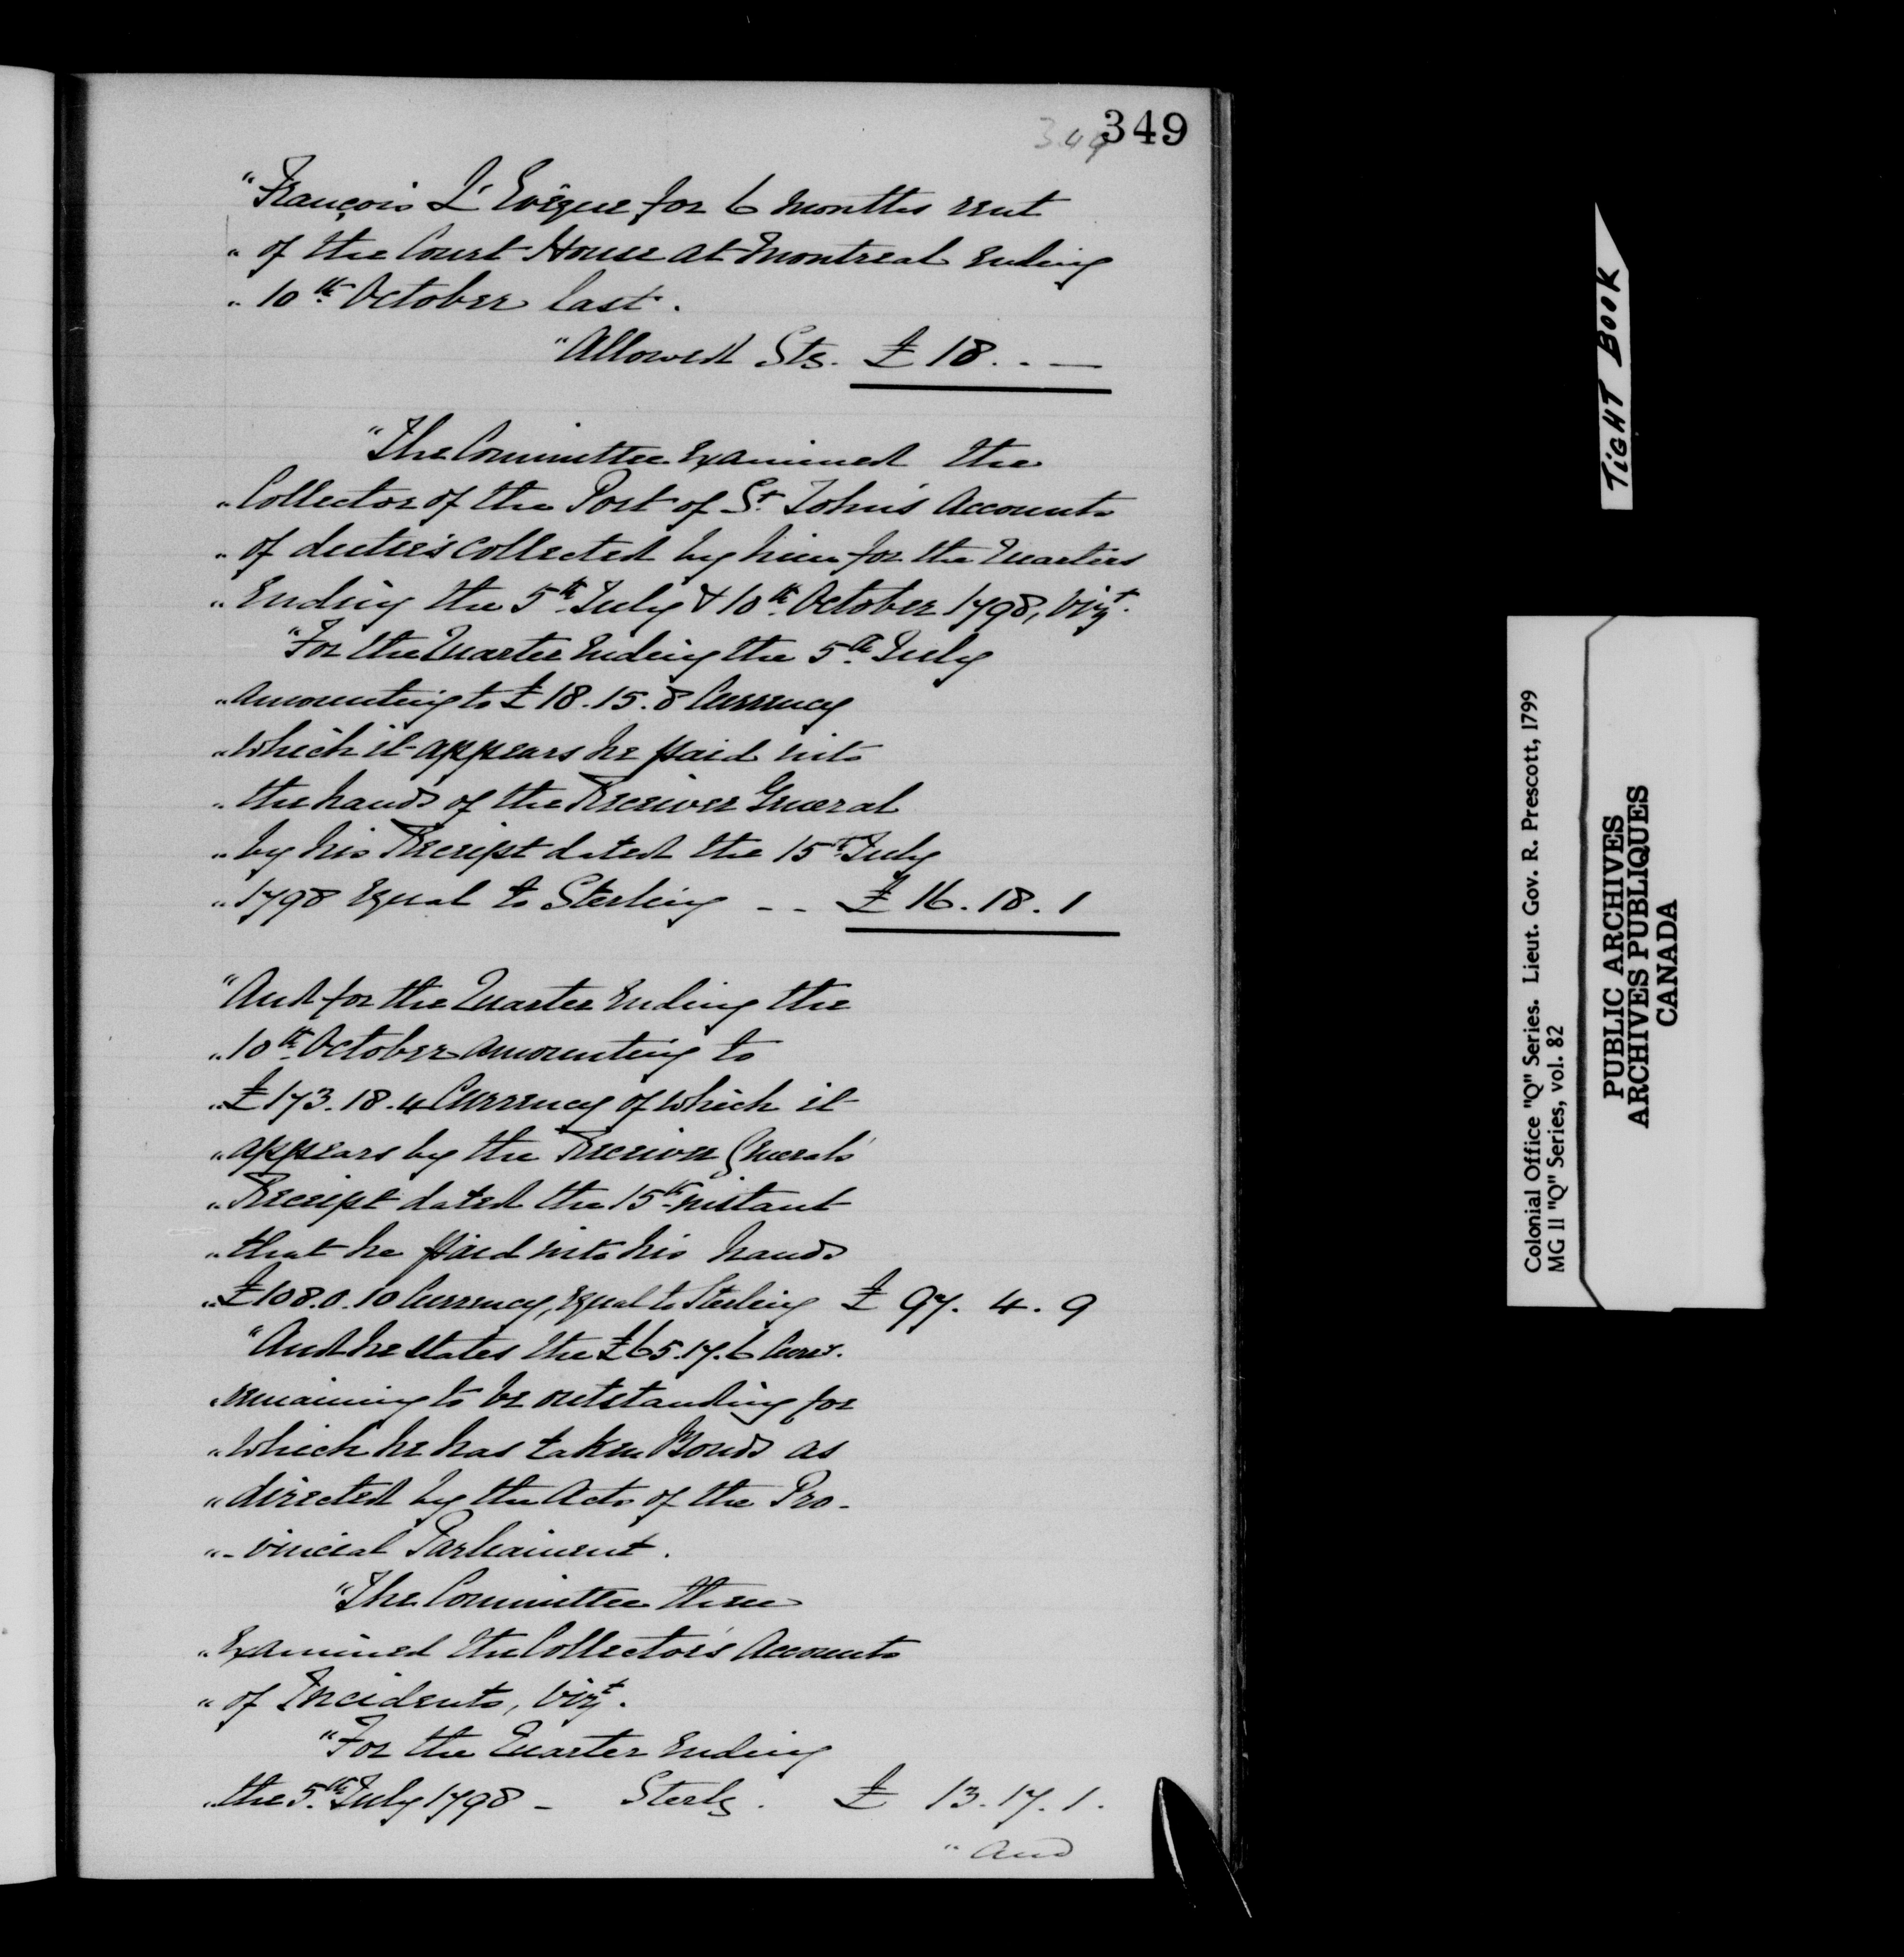 349
349
"François L'Evêque for 6 months rent
" of the Court House at Montreal Ending
" 10th October last.
"Allowed Stg. £ 18 . . —
"The Committee Examined the
" Collector of the Port of St. John's Accounts
" of dutie's collected by him for the Quarters
" Ending the 5th July & 10th October 1798, Vizt.
"For the Quarter Ending the 5th July
" amounting to £18.15.8 Currency
" which it appears he paid into
" the hands of the Receiver General
" by his Receipt dated the 15th July
" 1798 Equal to Sterling - - £ 16.18.1
"And for the Quarter Ending the
" 10th October amounting to
" £173.18.4 Currency of which it
" appears by the Receiver General's
" Receipt dated the 15th instant
" that he paid into his hands
" £108.0.10 Currency, Equal to Sterling £ 97. 4. 9
"And he states the £65.17.6 Curcy.
" remaining to be outstanding for
" which he has taken Bonds as
" directed by the Acts of the Pro-
" -vincial Parliament.
"The Committee then
" Examined the Collector's Accounts
" of Incidents, Vizt.
"For the Quarter Ending
" the 5th July 1798 - Sterlg. £ 13.17.1.
" And
TIGHT BOOK
Colonial Office "Q" Series. Lieut. Gov. R. Prescott, 1799
MG 11 "Q" Series, vol. 82
PUBLIC ARCHIVES
ARCHIVES PUBLIQUES
CANADA